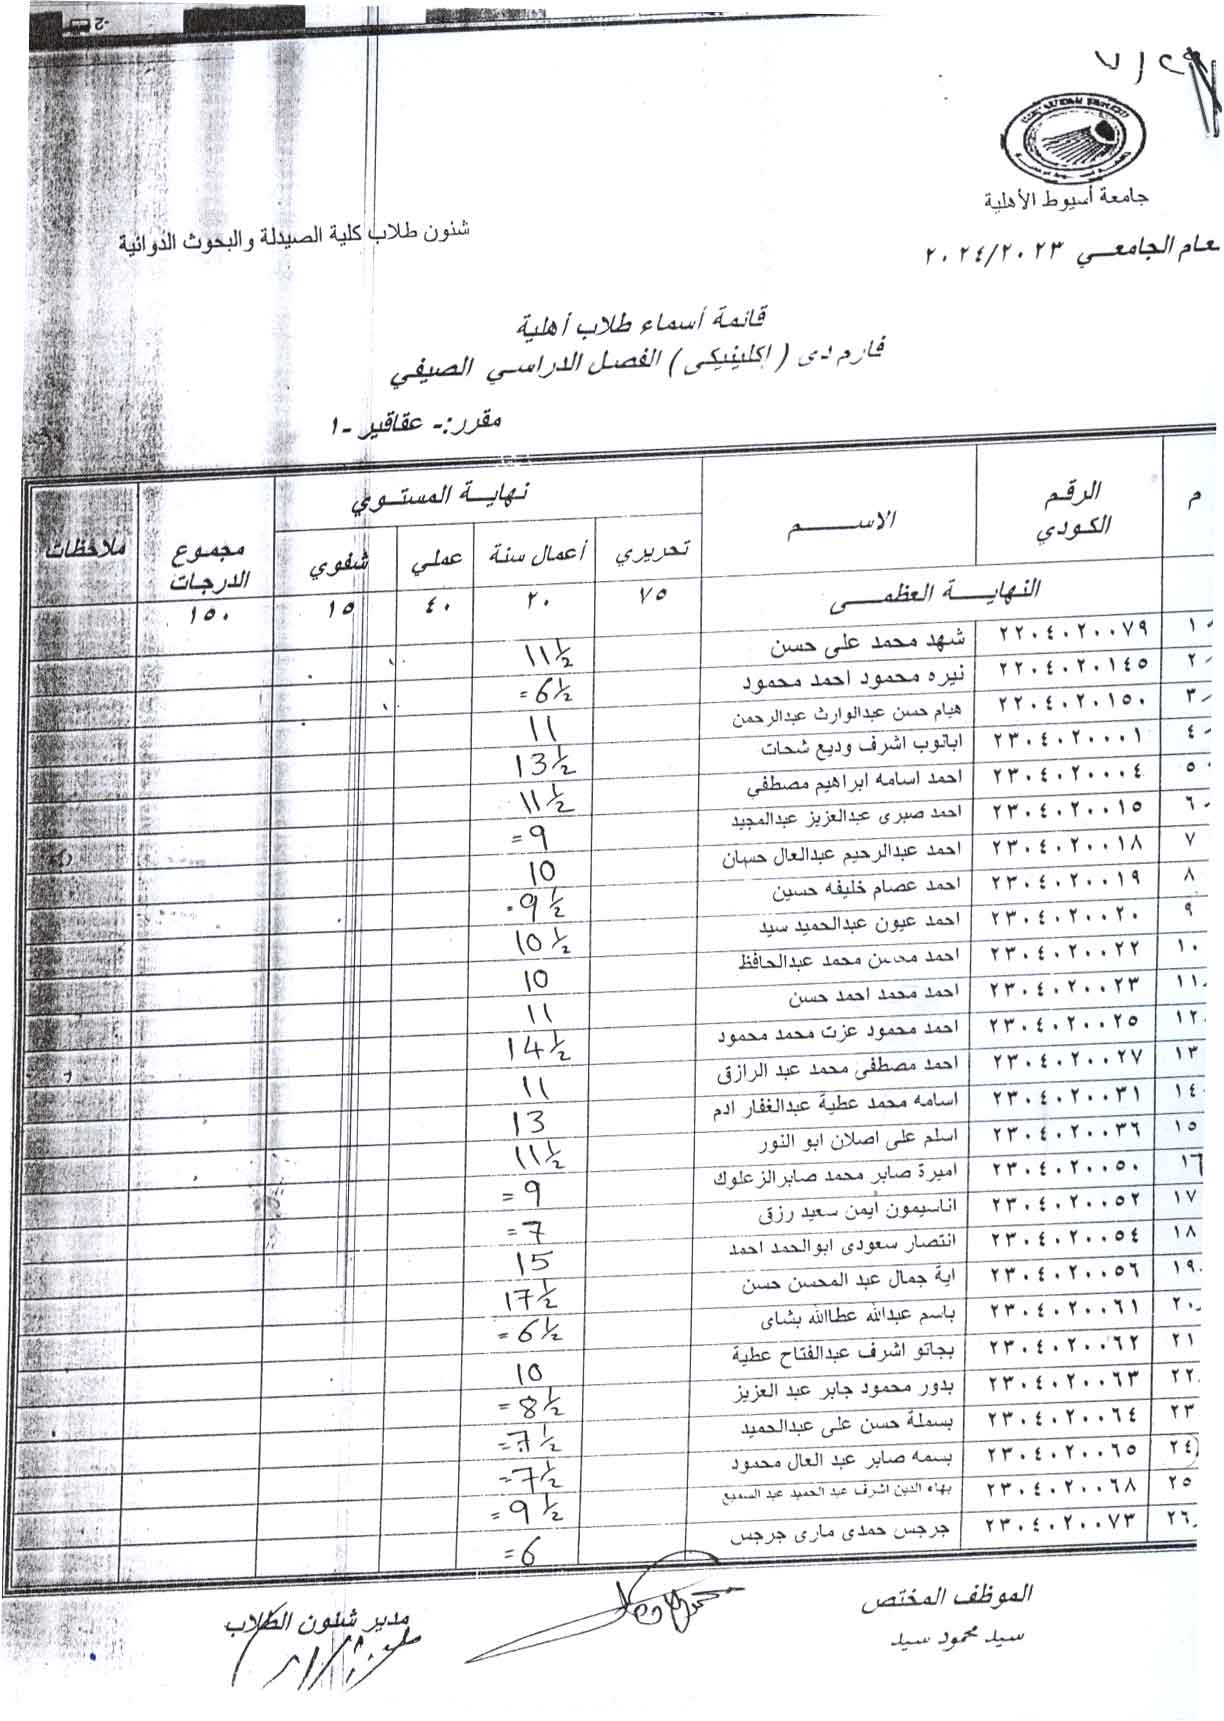 جامعة أسيوط الأهلية
شئون طلاب كلية الصيدلة والبحوث الدوائية
عام الجامعي ٢٠٢٤/٢٠٢٣
قائمة أسماء طلاب أهلية
فارم دى ( إكلينيكى ) الفصل الدراسي الصيفي
مقرر:- عقاقير -١
م الرقم الكودي الاسم نهاية المستوي مجموع الدرجات ملاحظات
تحريري أعمال سنة عملي شفوي
النهاية العظمى ٧٥ ٢٠ ٤٠ ١٥ ١٥٠
١ ٢٢٠٤٠٢٠٠٧٩ شهد محمد على حسن 11½
٢ ٢٢٠٤٠٢٠١٤٥ نيره محمود احمد محمود 6½=
٣ ٢٢٠٤٠٢٠١٥٠ هيام حسن عبدالوارث عبدالرحمن 11
٤ ٢٣٠٤٠٢٠٠٠١ ابانوب اشرف وديع شحات 13½
٥ ٢٣٠٤٠٢٠٠٠٤ احمد اسامه ابراهيم مصطفي 11½
٦ ٢٣٠٤٠٢٠٠١٥ احمد صبرى عبدالعزيز عبدالمجيد 9=
٧ ٢٣٠٤٠٢٠٠١٨ احمد عبدالرحيم عبدالعال حسان 10
٨ ٢٣٠٤٠٢٠٠١٩ احمد عصام خليفه حسين 9½
٩ ٢٣٠٤٠٢٠٠٢٠ احمد عيون عبدالحميد سيد 10½
١٠ ٢٣٠٤٠٢٠٠٢٢ احمد محسن محمد عبدالحافظ 10
١١ ٢٣٠٤٠٢٠٠٢٣ احمد محمد احمد حسن 11
١٢ ٢٣٠٤٠٢٠٠٢٥ احمد محمود عزت محمد محمود 14½
١٣ ٢٣٠٤٠٢٠٠٢٧ احمد مصطفى محمد عبد الرازق 11
١٤ ٢٣٠٤٠٢٠٠٣١ اسامه محمد عطية عبدالغفار ادم 13
١٥ ٢٣٠٤٠٢٠٠٣٦ اسلم على اصلان ابو النور 11½
١٦ ٢٣٠٤٠٢٠٠٥٠ اميرة صابر محمد صابرالزعلوك 9=
١٧ ٢٣٠٤٠٢٠٠٥٢ اناسيمون أيمن سعيد رزق 7=
١٨ ٢٣٠٤٠٢٠٠٥٤ انتصار سعودى ابوالحمد احمد 15
١٩ ٢٣٠٤٠٢٠٠٥٦ اية جمال عبد المحسن حسن 17½
٢٠ ٢٣٠٤٠٢٠٠٦١ باسم عبدالله عطاالله بشاى 6½=
٢١ ٢٣٠٤٠٢٠٠٦٢ بجاتو اشرف عبدالفتاح عطية 10
٢٢ ٢٣٠٤٠٢٠٠٦٣ بدور محمود جابر عبد العزيز 8½=
٢٣ ٢٣٠٤٠٢٠٠٦٤ بسملة حسن على عبدالحميد 7½=
٢٤ ٢٣٠٤٠٢٠٠٦٥ بسمه صابر عبد العال محمود 7½=
٢٥ ٢٣٠٤٠٢٠٠٦٨ بهاء الدين اشرف عبد الحميد عبد السميع 9½=
٢٦ ٢٣٠٤٠٢٠٠٧٣ جرجس حمدى مارى جرجس 6=
الموظف المختص
سيد محمود سيد
مدير شئون الطلاب